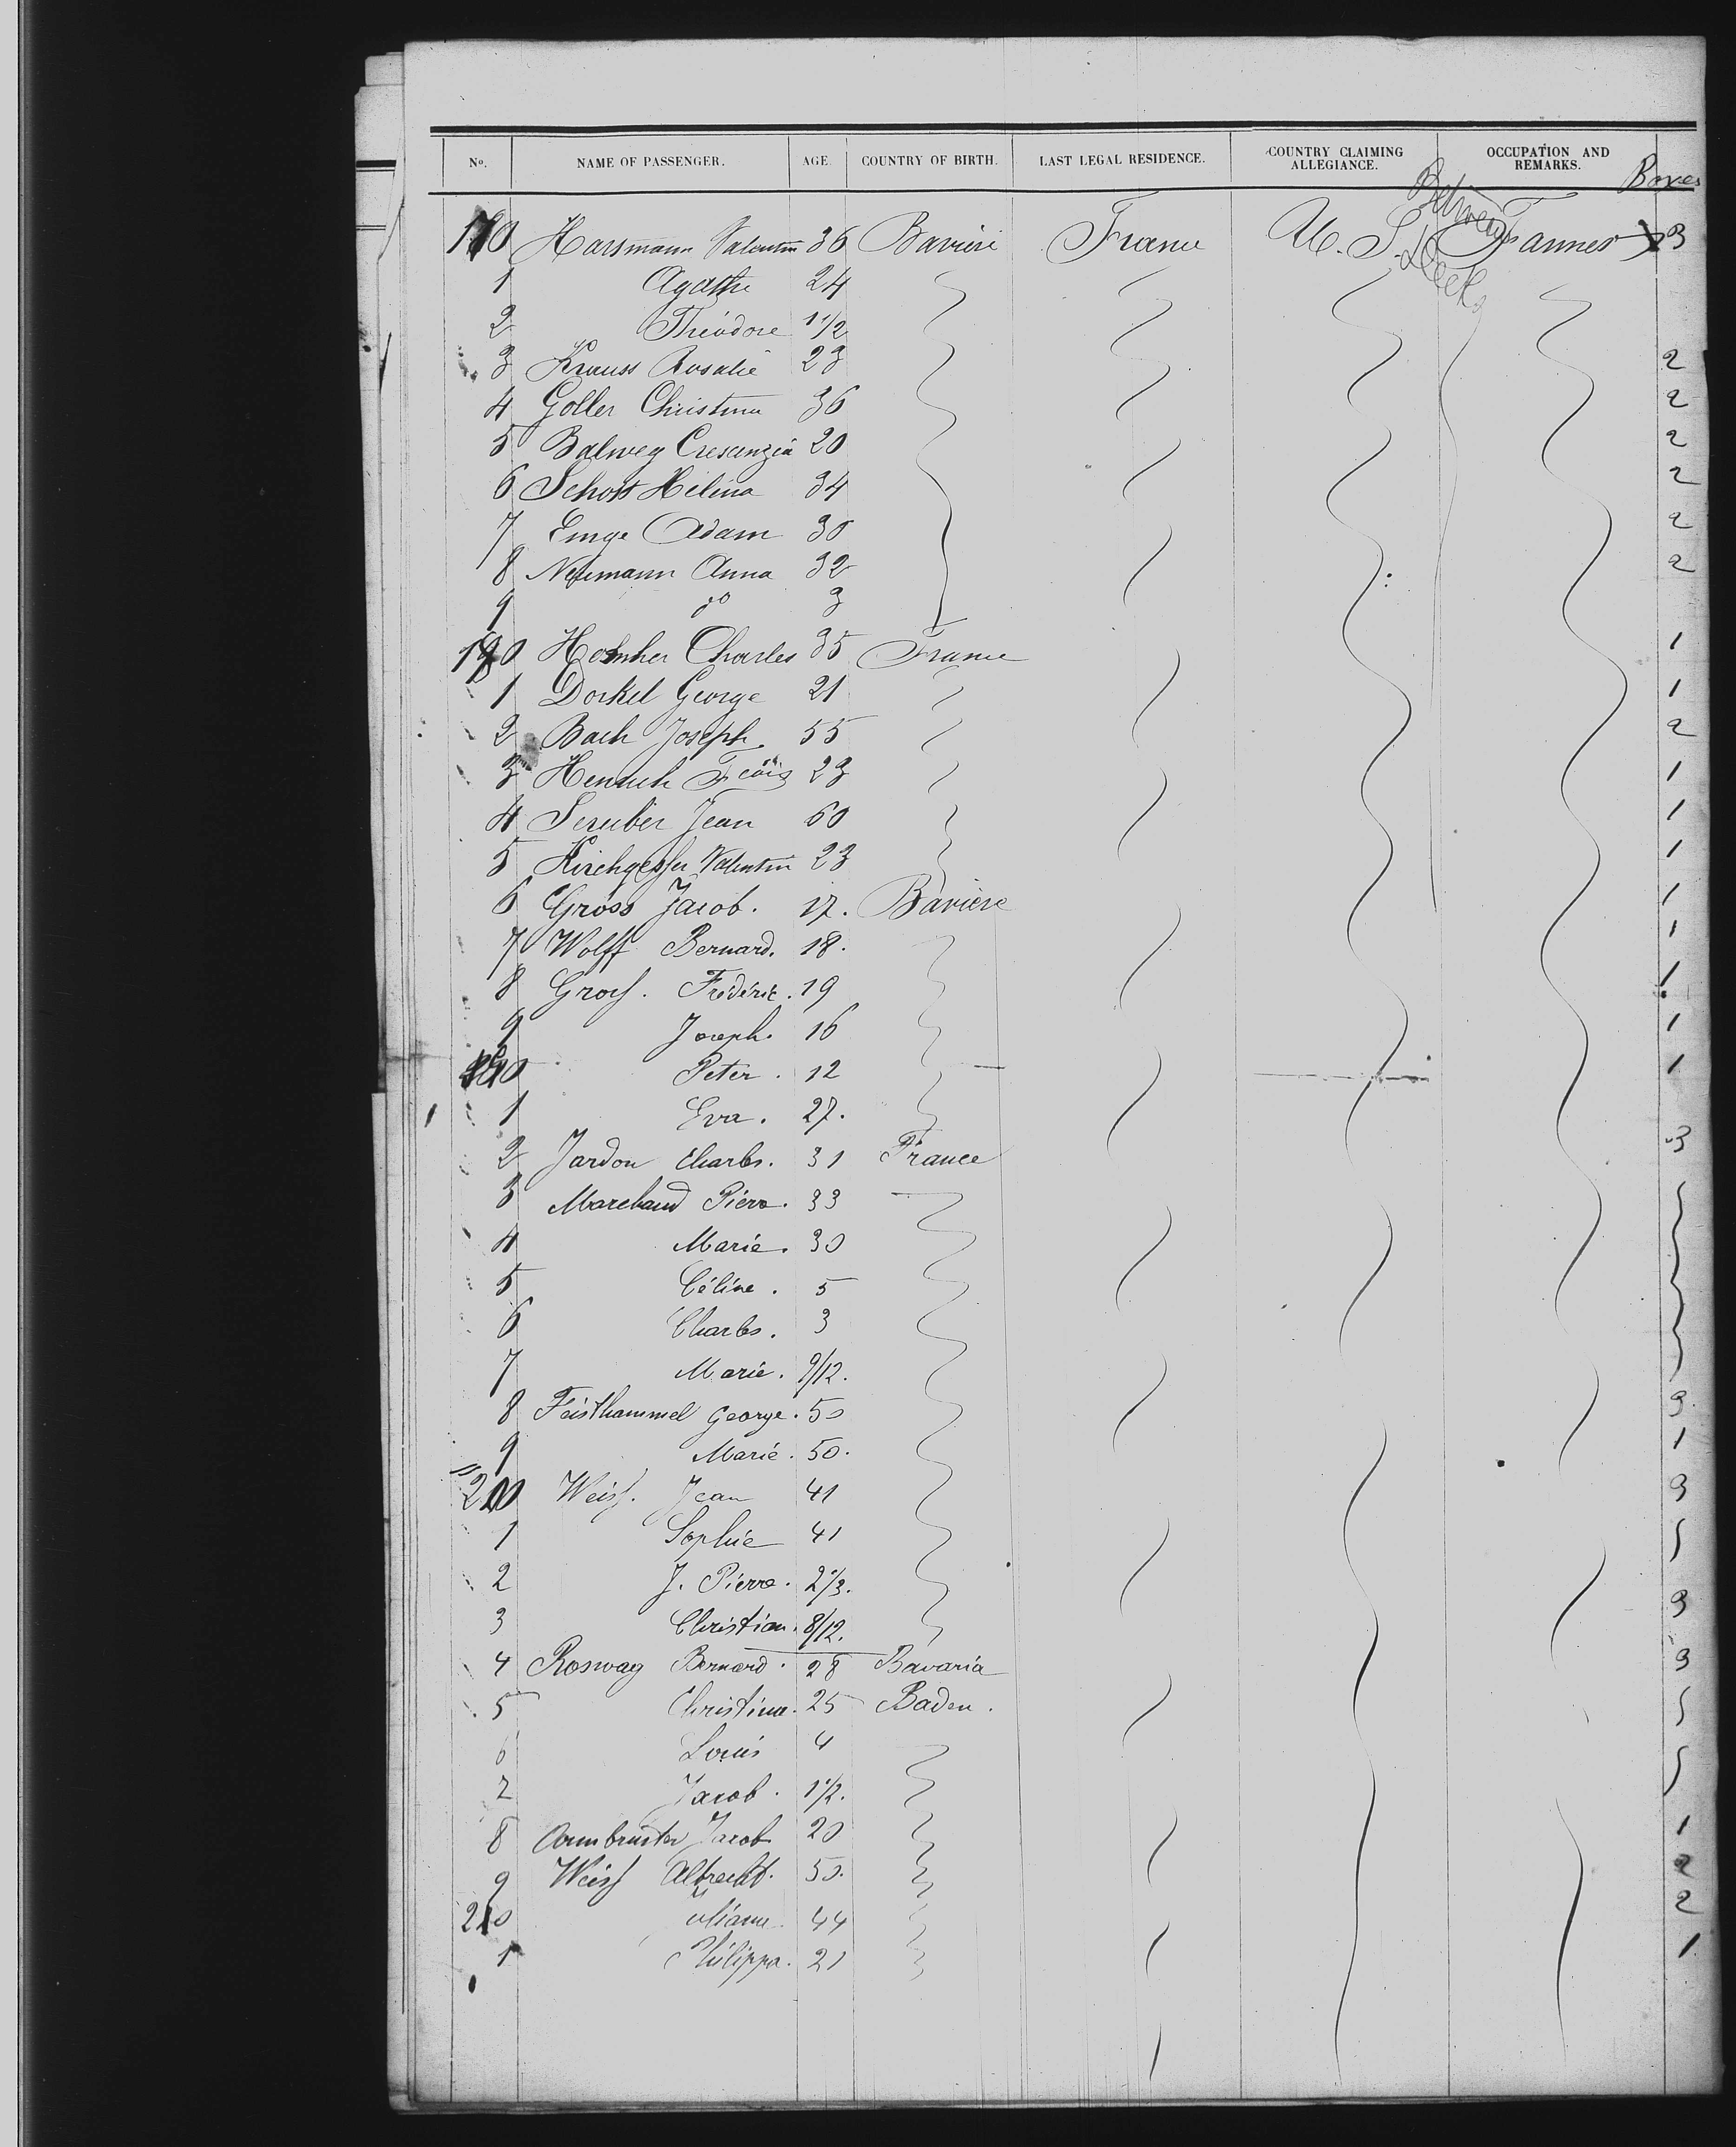 No. NAME OF PASSENGER. AGE. COUNTRY OF BIRTH. LAST LEGAL RESIDENCE. COUNTRY CLAIMING ALLEGIANCE. OCCUPATION AND REMARKS. Boxes
Between Decks
170 Harsmann Valentin 36 Baviere France U. S. Farmer 3
1 Agathe 24
2 Théodore 1 1/2
3 Krauss Rosalie 23 2
4 Goller Christina 36 2
5 Balweg Crescenzia 20 2
6 Schott Hélèna 34 2
7 Emge Adam 30 2
8 Neumann Anna 32 2
9 do 3
180 Charles 35 France 1
1 Dorkel George 21 1
2 Bach Joseph 55 2
3 Henrich Fçois 23 1
4 Jean 60 1
5 Kirchgesser Valentin 23 1
6 Gross Jacob. 17. Baviere 1
7 Wolff Bernard. 18. 1
8 Gross. Fréderic. 19 1
9 Joseph. 16 1
190 Peter. 12 1
1 Eva. 27.
2 Jardon Charles. 31 France 3
3 Marchand Pierre. 33
4 Marie. 30
5 Céline. 5
6 Charles. 3
7 Marie. 9/12.
8 Feisthammel George. 50 3
9 Marie. 50. 1
200 Weiss. Jean 41 3
1 Sophie 41
2 J. Pierre. 2 1/3.
3 Christian. 8/12. 3
4 Roswag Bernard. 28 Bavaria 3
5 Christina. 25 Baden.
6 Louis 4
7 Jacob. 1 1/2.
8 Armbruster Jacob 20 1
9 Weiss Albrecht. 50. 2
210 Juliana 44 2
1 Philippa. 21 1